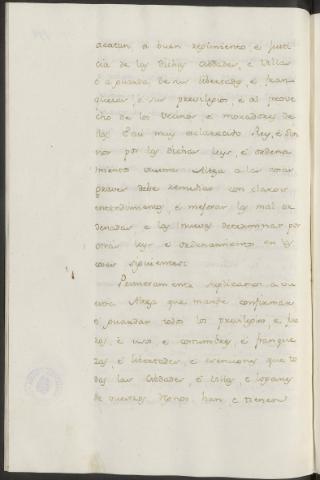 acatan, a buen regimiento, é justi
cia de las dichas cibdades, é villas
é a guarda de sus libertades, é fran
quezas, é sus previlegios, é al prove
cho de los vecinos é moradores de
ellas. E así muy esclarecido Rey, é Señor
nos por las dichas leys, é ordena
mientos vuestra Alteza a las cosas
graves debe remediar con claro
entendimiento, é mejorar las mal or
denadas é las nuevas determinar por
otras leys é ordenamientos en las
cosas siguientes:
Primeramente suplicamos a vu
estra Alteza que mande confirmar
é guardar todos los previlegios, é fue
ros, é usos, é costumbres, é franque
zas, é libertades, é esenciones que to
das las Cibdades, é Villas, é Logares
de vuestros Regnos han, é tienen